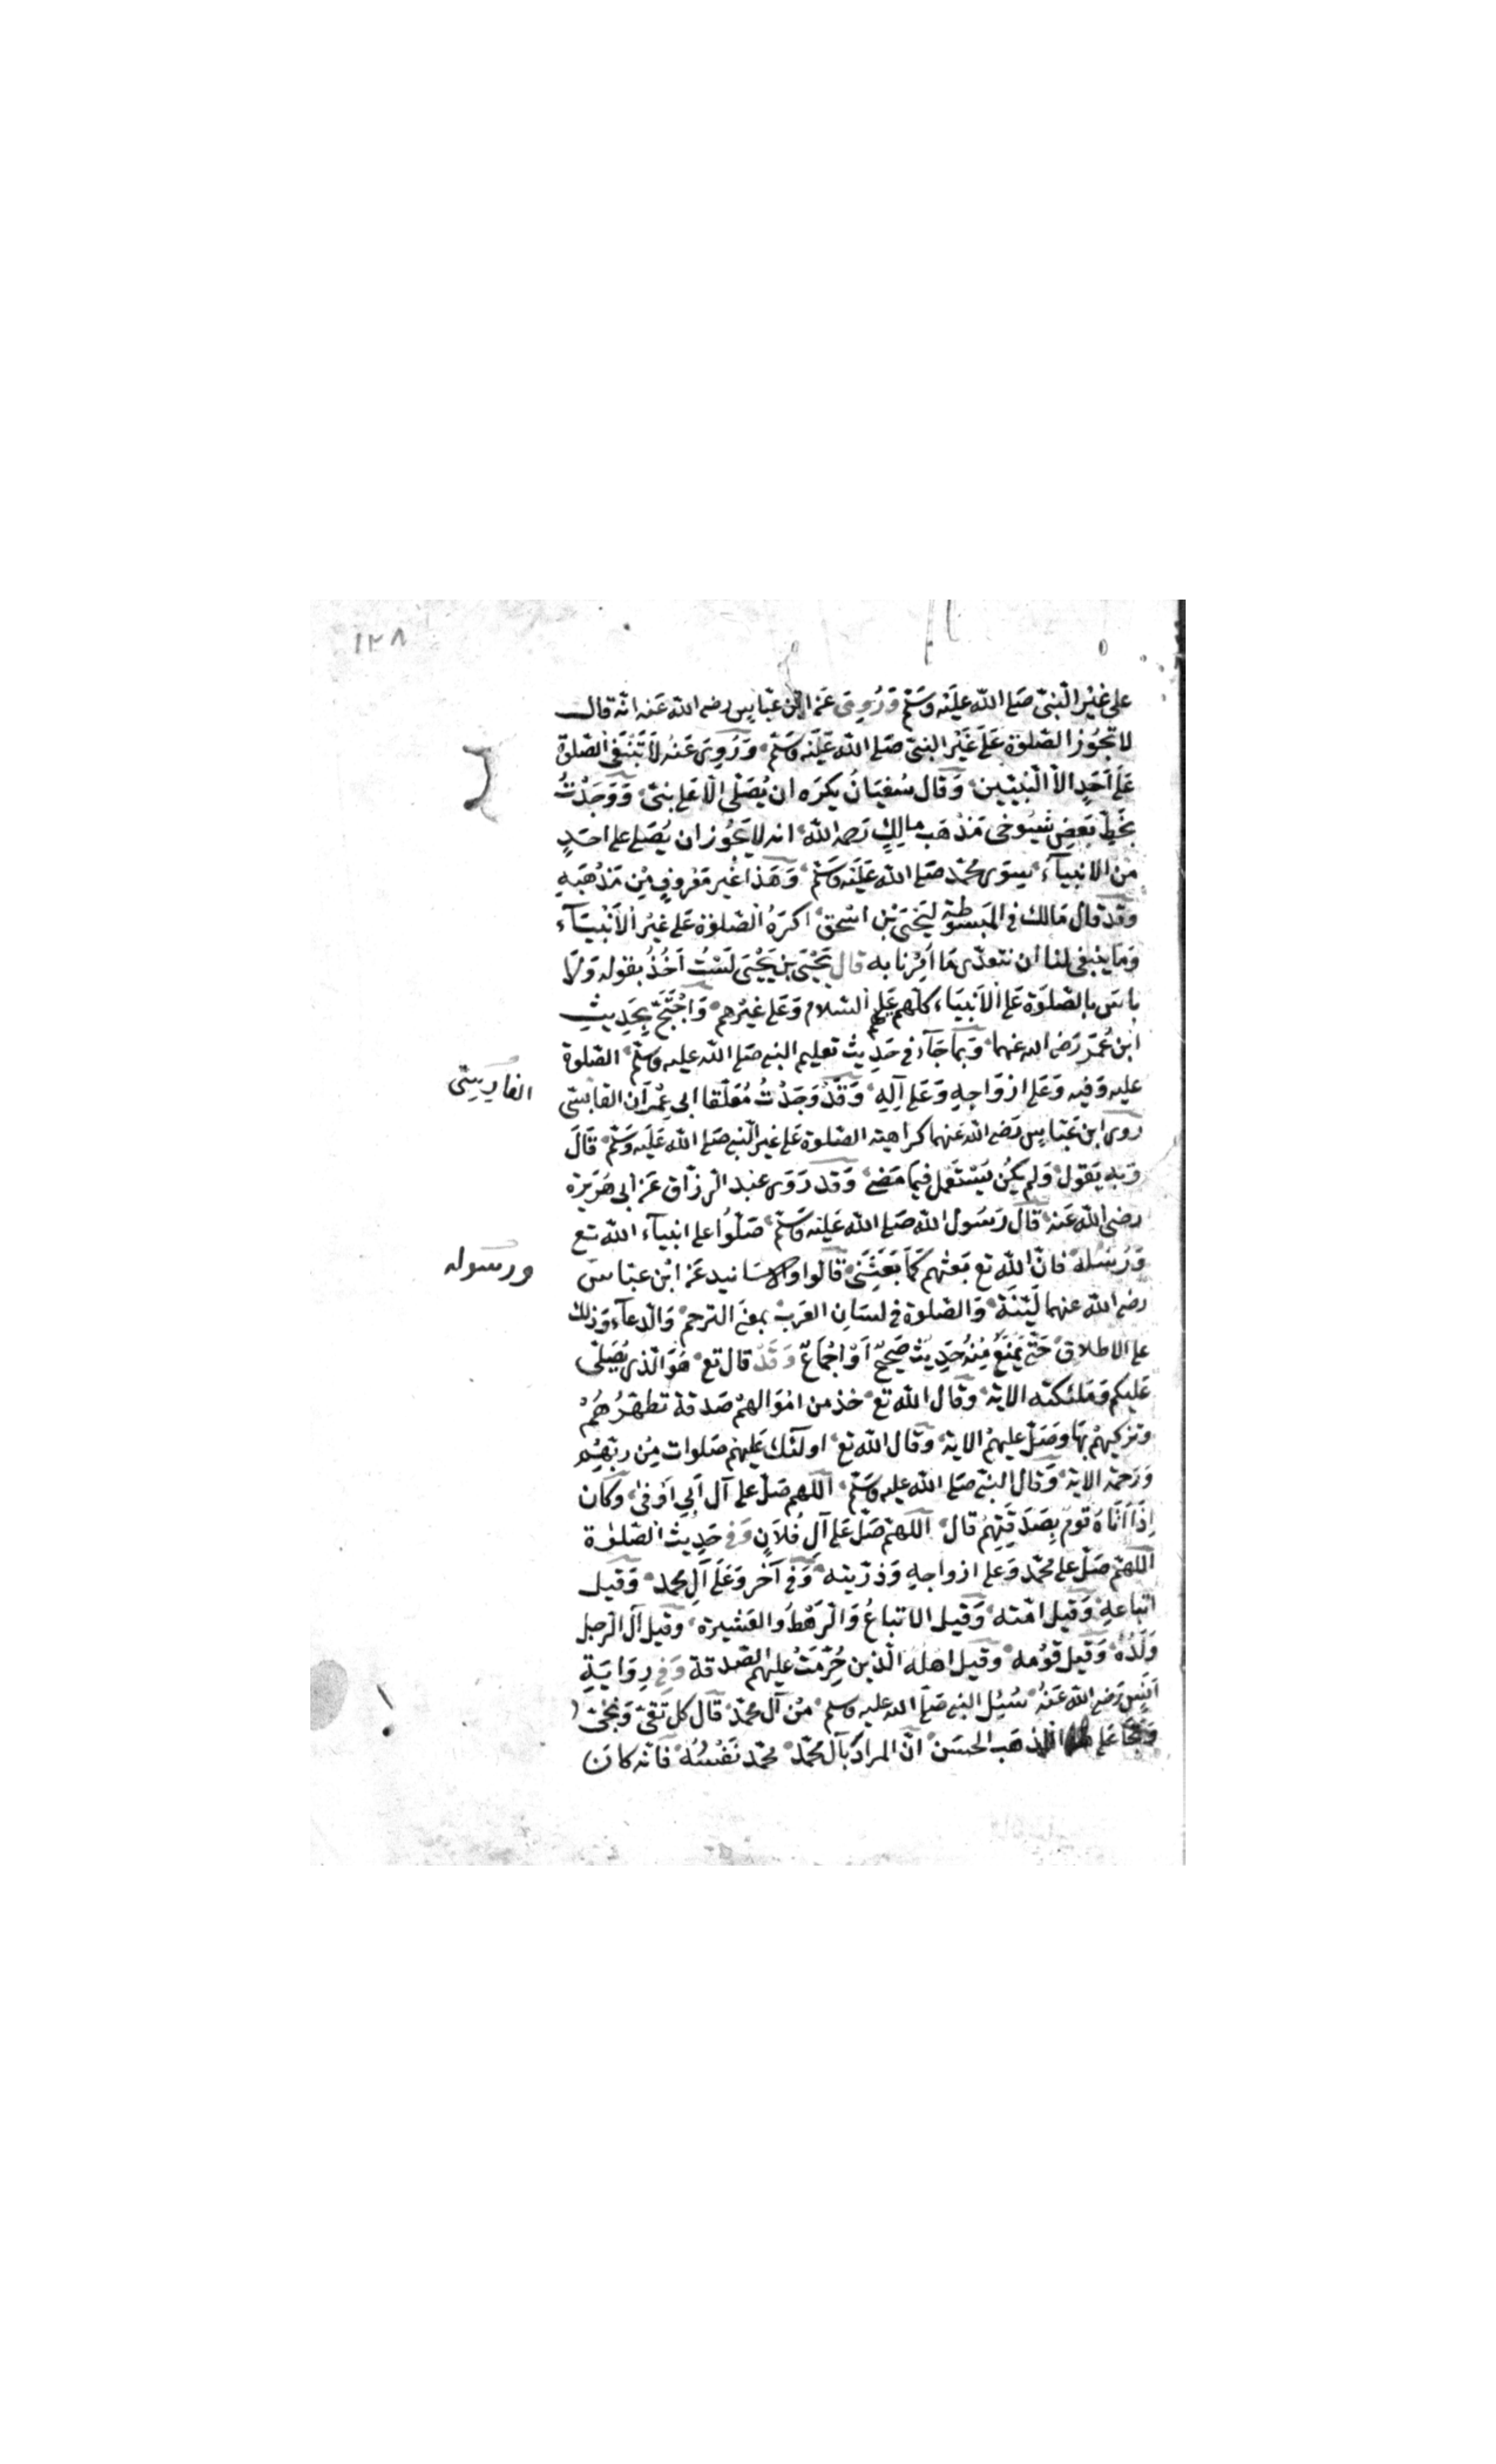 ١٢٨
على غَيْر النّبىّ صَلى الله عليَه وَسَلّم وَرُوِىَ عَن ابْن عبّاسٍ رضى الله عَنه انّه قال
لا تجُوز الصّلوٰة عَلى غَيْر النبىّ صَلى الله عَليَه وَسَلّم وَرُوِىَ عَنْه لَا تَنْبَغى الصّلوة
عَلى أحَدٍ الّا النّبيّين وَقَال سُفيَانُ يكرَه ان يُصَلّى الّا عَلى نبىّ وَوَجَدْتُ
بخَطّ بَعضِ شيُوخى مَذْهَب مالِكٍ رَحمه الله انه لا يَجُوز ان يُصَلى على احَدٍ
من الانبيآء سِوَى محمّد صَلى الله عَليَه وَسَلّم وَهَذا غَير مَعْروُفٍ مِن مَذْهَبِهِ
وقدْ قال مَالك فى المَبسُوطة ليَحْيَى بْن اسْحٰق اكرَهُ الصّلوٰة عَلى غَيْر الأنْبيَآء
وَمَا يَنبغى لنا ان نتعدّى مَا اُمِرْنا به قال يَحْيَى بن يَحْيَى لَسْتُ آخُذُ بقوله وَلَا
باسَ بالصّلوَة عَلى الأنبيَاء كلّهم عليهم السّلام وَعَلى غَيْرهم وَاحْتَجّ بحَدِيثِ
ابن عُمَرَ رَضى الله عَنهما وَبمَا جَآء فى حَدِيث تعليم النبى صَلى الله عليه وسَلّم الصّلوة
عليه وَفيه وَعَلى ازوَاجِهِ وَعَلى آلِهِ وَقَدْ وَجَدْتُ مُعَلّقا ابى عِمْرَان القابسّى
الفارسىّ
رَوى ابن عَبّاس رَضى الله عَنهما كراهية الصّلوة عَلى غير النّبى صَلى الله عَليَه وَسَلّم قَالَ
وَبه يَقول وَلم يَكُن يُسْتَعْمل فيمَا مَضىٰ وَقد رَوَى عبد الرزّاق عَن ابى هُرَيرَة
رضى الله عَنه قَال رَسُول الله صَلى الله عَليَه وَسَلّم صَلّوُا على انبيآء الله تع
وَرُسُله فانّ الله تع بَعَثهم كَمَا بَعَثَنى قالوا والاسَانيد عَن ابْن عبّاس
ورسوله
رضى الله عنهما ليّنَة وَالصّلوة فى لسَان العَرَب بمعنى الترحم وَالدّعآء وَذلك
على الاطلاق حَتّى يَمنَع مِنْه حَدِيث صَحيحٌ اَوْ اجْمَاعٌ وَقَدْ قال تع هُوَ الّذى يُصَلّى
عَليكم وَمَلئكته الاية وقَال الله تع خذ من امْوَالهم صَدقة تطهّرُهُمْ
وتزكيهمْ بهَا وَصَلّ عليهمْ الاية وَقَال الله تع اولئك عَليهم صَلوات مِن ربّهم
وَرَحمَة الاية وَقَال النبىّ صَلى الله عليه وسَلّم اللّهم صَلّ على آل اَبى اَوفى وكَان
اِذَا اَتاهُ قومٌ بصَدَقَتِهِم قال اللّهمّ صَلّ عَلى آلِ فُلَانٍ وَفى حَدِيث الصّلوٰة
اللهمّ صَلّ على محمّد وَعلى ازواجِهِ وَذرّيته وَفى آخَر وَعَلى آلِ محمد وَقيل
اتباعه وَقيل امّته وَقيل الاتباعُ وَالرّهْطُ والعَشيرة وَقيل آل الرجل
وَلَدُهُ وَقيل قَوْمه وَقيل اهلُه الّذين حُرّمَتْ عليهم الصّدقة وَفى رِوَايَةِ
اَنَسٍ رَضى الله عَنْهُ سُئِل النبى صَلى الله عليه وسلم مَن آل محمّدٍ قال كلّ تَقىّ وَيَجىُٔ
عَلى مَذهَب الحسَن انّ المرادَ بآل محمّد محمّد نَفْسُهُ فانّه كان